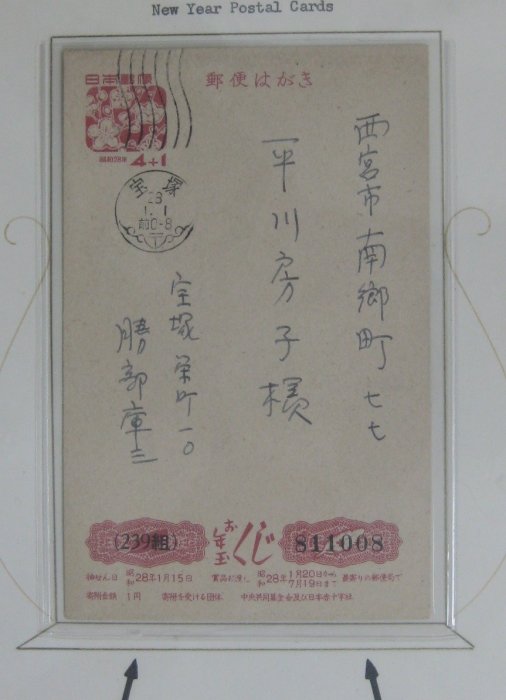 New Year Postal Cards
日本郵便
昭和28年 4+1
郵便はがき
宝塚
28
1.1
前0-8
西宮市南郷町七七
平川房子様
宝塚栄町一〇
勝部庫三
(239組)
お年玉くじ
811008
抽せん日 昭和28年1月15日 賞品お渡し 昭和28年1月20日から7月19日まで 最寄りの郵便局で
寄附金額 1円 寄附を受ける団体 中央共同募金会及び日本赤十字社